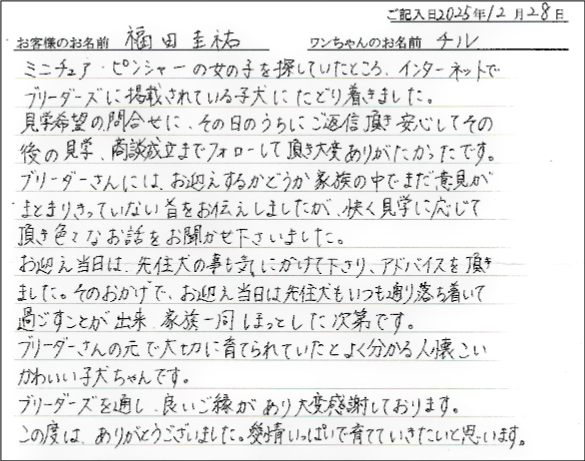 ご記入日2025年12月28日
お客様のお名前 福田圭祐 ワンちゃんのお名前 チル
ミニチュア・ピンシャーの女の子を探していたところ、インターネットで
ブリーダーズに掲載されている子犬にたどり着きました。
見学希望の問合せに、その日のうちにご返信頂き安心してその
後の見学、商談成立までフォローして頂き大変ありがたかったです。
ブリーダーさんには、お迎えするかどうか家族の中でまだ意見が
まとまりきっていない旨をお伝えしましたが、快く見学に応じて
頂き色々なお話をお聞かせ下さいました。
お迎え当日は、先住犬の事も気にかけて下さり、アドバイスを頂き
ました。そのおかげで、お迎え当日は先住犬もいつも通り落ち着いて
過ごすことが出来、家族一同ほっとした次第です。
ブリーダーさんの元で大切に育てられていたとよく分かる人懐こい
かわいい子犬ちゃんです。
ブリーダーズを通し、良いご縁があり大変感謝しております。
この度は、ありがとうございました。愛情いっぱいで育てていきたいと思います。